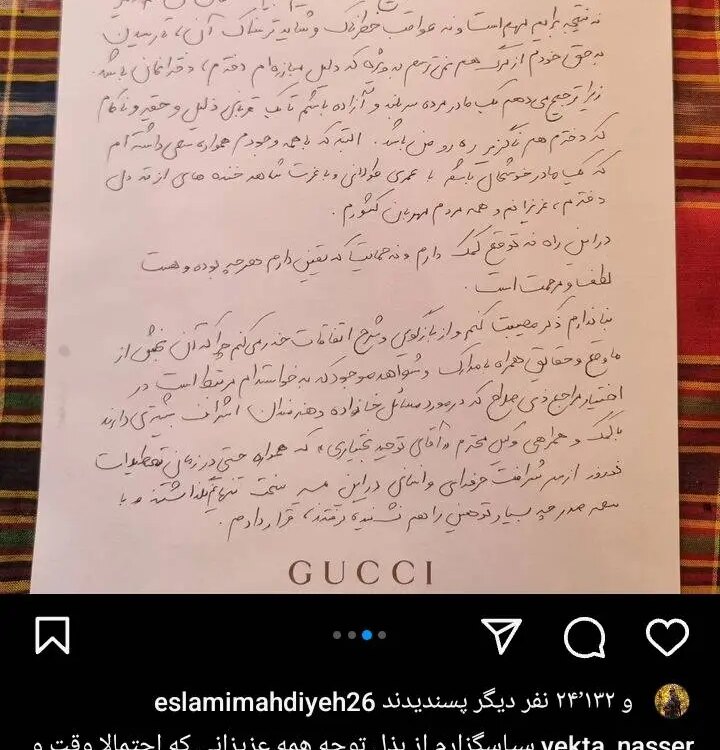 نه نتیجه برایم مهم است و نه عواقب خطرناک و شاید ترسناک آن، تا رسیدن
به حق خودم از مرگ هم نمی‌ترسم به ویژه که دلیل مبارزه‌ام دخترم، دخترانمان باشد.
زیرا ترجیح می‌دهم یک مادر مرده سربلند و آزاده باشم تا یک قربانی ذلیل و حقیر و ناکام
که دخترم هم ناگزیر ره رو من باشد. البته که با همه وجودم همواره سعی داشته‌ام
که یک مادر خوشحال باشم با عمری طولانی و با عزت شاهد خنده های از ته دل
دخترم، عزیزانم و همه مردم مهربان کشورم.
در این راه نه توقع کمک دارم و نه حمایت که یقین دارم هر چه بوده و هست
لطف و مرحمت است.
بنا ندارم ذکر مصیبت کنم و از بازگویی و شرح اتفاقات حذر می‌کنم چرا که آن بخش از
ماوقع و حقایق همراه با مدارک و شواهد موجود که به خواسته‌ام مرتبط است در
اختیار مراجع ذی صلاح که در مورد مسائل خانواده و هنرمندان اشراف بیشتری دارند
با کمک و همراهی وکیل محترم «آقای توحید بختیاری» که همواره حتی در زمان تعطیلات
نوروز از سر شرافت حرفه‌ای و انسانی در این مسیر سخت تنهایم نگذاشتند و با
سعه صدر چه بسیار توهین را هم نشنیده گرفتند، قرار دادم.
GUCCI
eslamimahdiyeh26 و ۲۴٬۱۳۲ نفر دیگر پسندیدند
yekta_nasser سپاسگزارم از بذل توجه همه عزیزانی که احتمالا وقت و